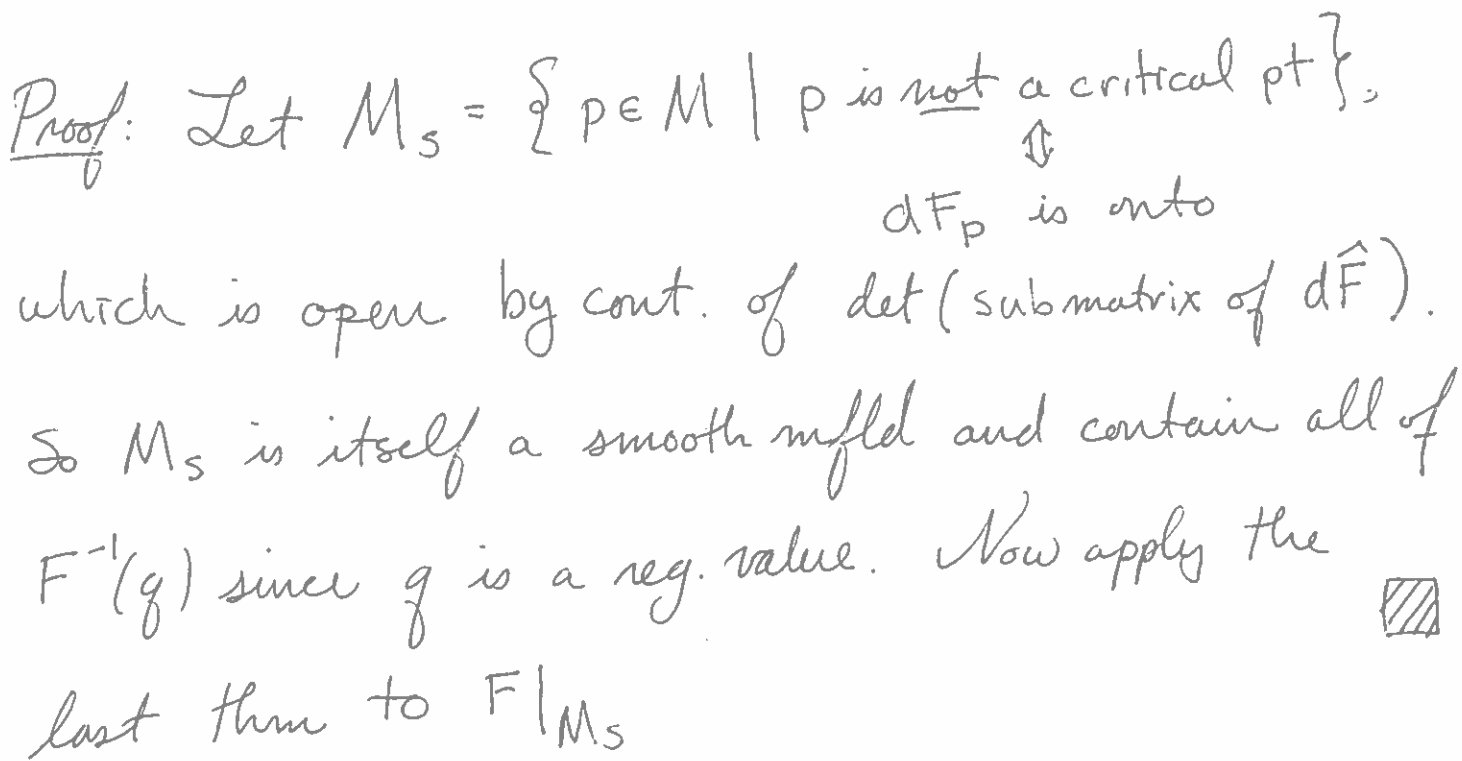 Proof: Let M_s = { p ∈ M | p is not a critical pt },
⇕
dF_p is onto
which is open by cont. of det ( submatrix of dF̂ ).
So M_s is itself a smooth mfld and contain all of
F⁻¹(q) since q is a reg. value. Now apply the
last thm to F|_{M_s}